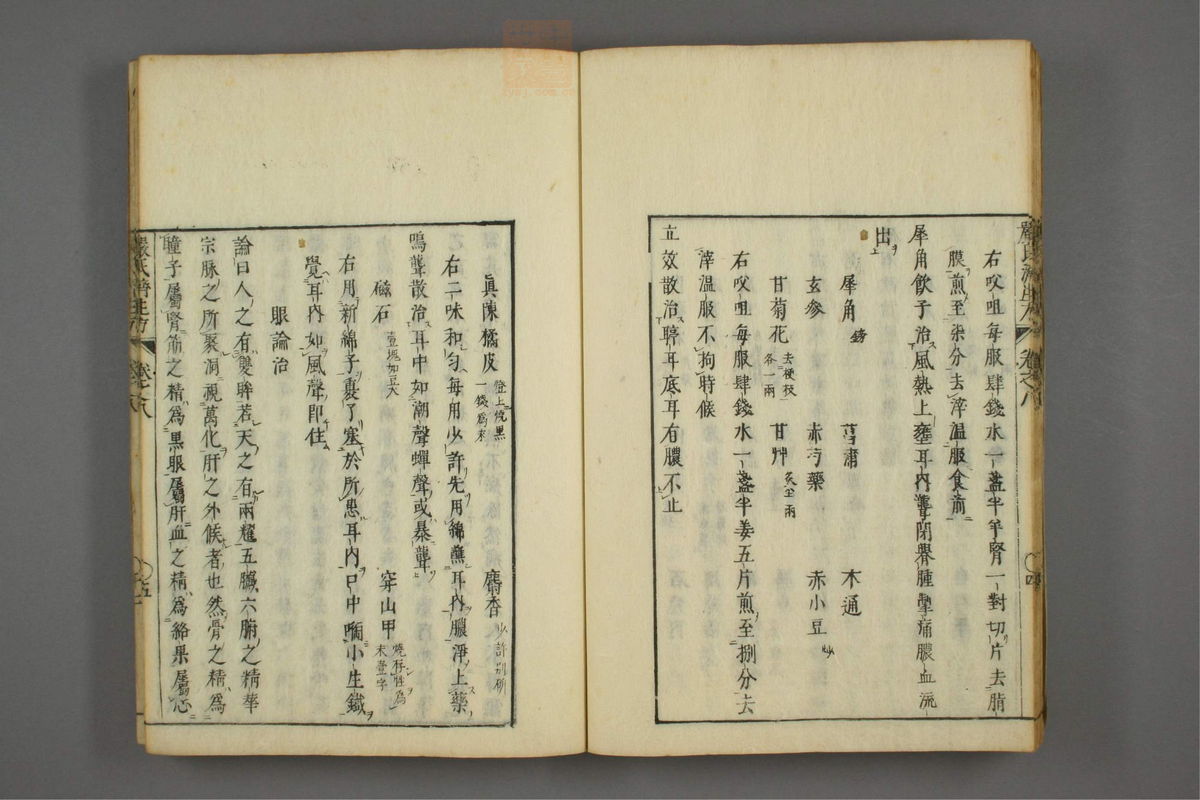 右㕮咀每服肆錢水一盞半羊腎一對切片去脂
膜煎至柒分去滓溫服食前
犀角飲子治風熱上壅耳內聾閉臖腫掣痛膿血流
出
犀角 鎊 菖蒲 木通
玄參 赤芍藥 赤小豆 炒
甘菊花 去梗枝各一兩 甘艸 炙半兩
右㕮咀每服肆錢水一盞半姜五片煎至捌分去
滓溫服不拘時候
立效散治聤耳底耳有膿不止
眞陳橘皮 燈上燒黑一錢爲末 麝香 少許別研
右二味和勻每用少許先用綿蘸耳內膿淨上藥
鳴聾散治耳中如潮聲蟬聲或暴聾
磁石 壹塊如豆大 穿山甲 燒存性爲末壹字
右用新綿子裹了塞於所患耳內口中嚼小生鐵
覺耳內如風聲即住
眼論治
論曰人之有雙眸若天之有兩耀五臟六腑之精華
宗脉之所聚洞視萬化肝之外候者也然骨之精爲
瞳子屬腎筋之精爲黑眼屬肝血之精爲絡果屬心
嚴氏濟生方 卷之八